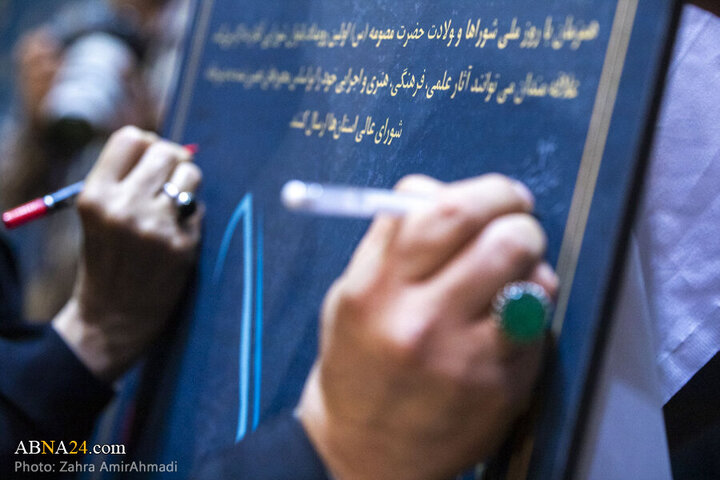 همزمان با روز ملی شوراها و ولادت حضرت معصومه (س) اولین رویداد
علاقه مندان می توانند آثار علمی، فرهنگی، هنری و اجرایی خود را
شورای عالی استان‌ها ارسال کنند.
ABNA24.com
Photo: Zahra AmirAhmadi